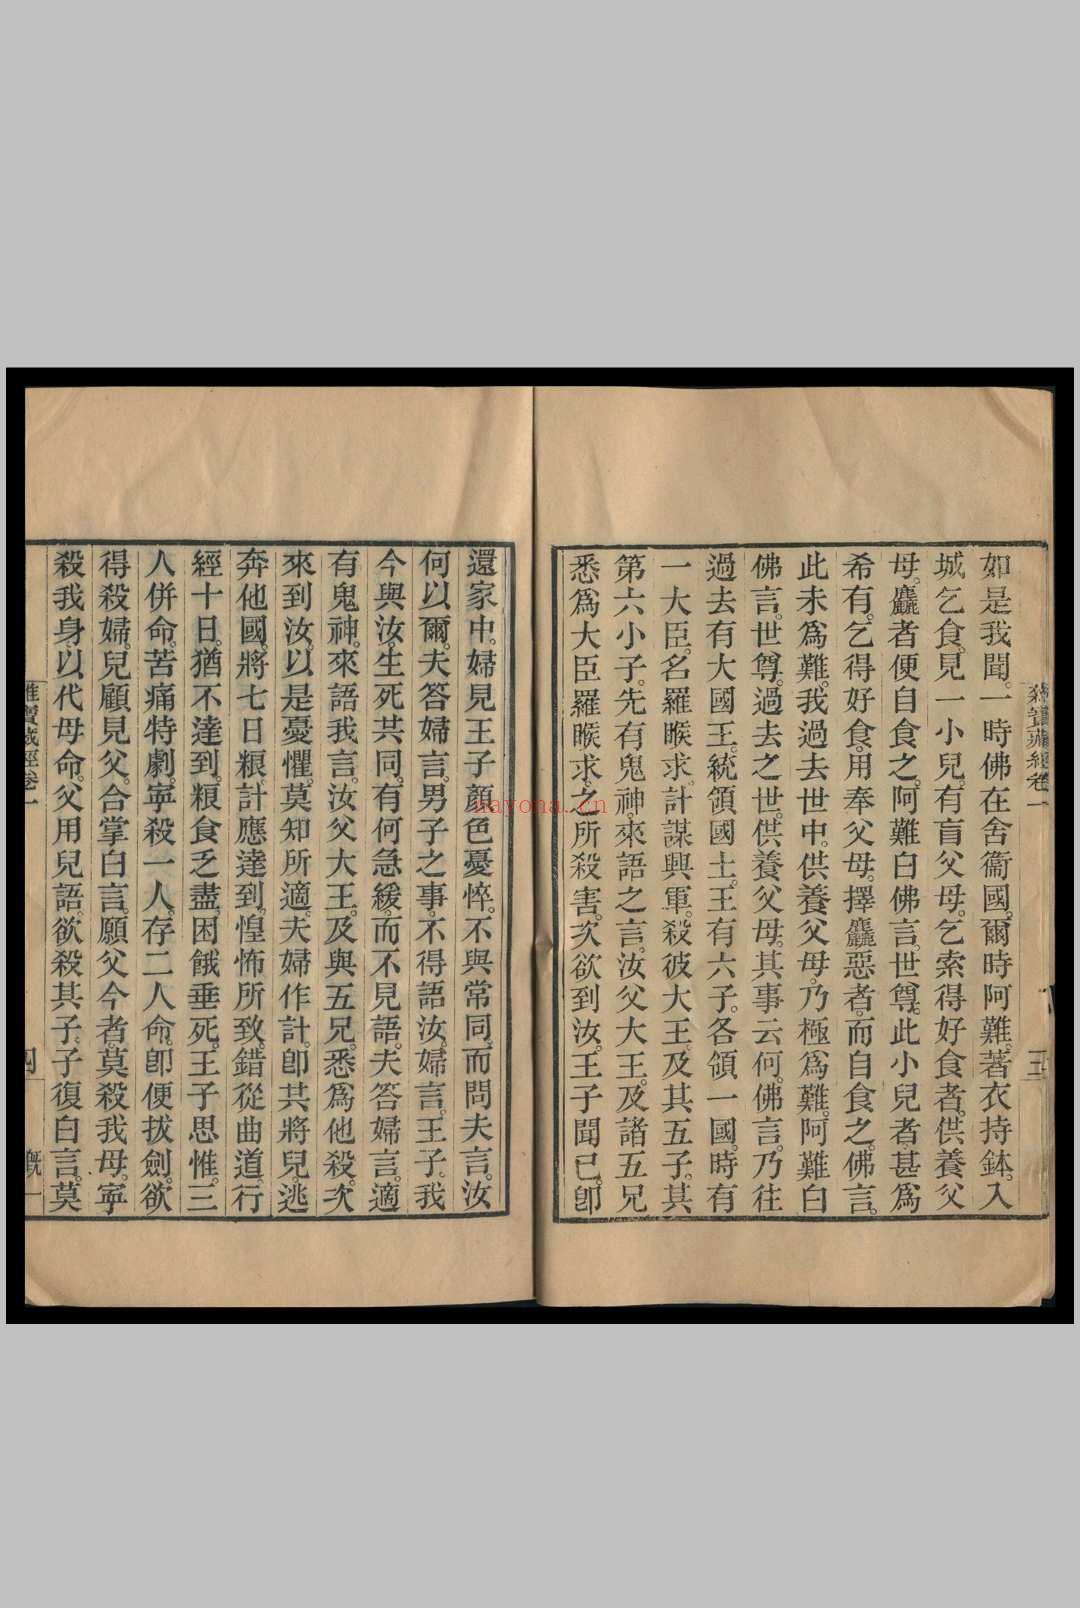 雜寶藏經卷一
三
如是我聞。一時佛在舍衞國。爾時阿難。著衣持鉢。入
城乞食。見一小兒。有盲父母。乞索得好食者。供養父
母。麤者便自食之。阿難白佛言。世尊。此小兒者甚爲
希有。乞得好食。用奉父母。擇麤惡者。而自食之。佛言。
此未爲難。我過去世中。供養父母。乃極爲難。阿難白
佛言。世尊。過去之世。供養父母。其事云何。佛言。乃往
過去有大國王。統領國土。王有六子。各領一國。時有
一大臣。名羅睺求。計謀興軍。殺彼大王。及其五子。其
第六小子。先有鬼神。來語之言。汝父大王。及諸五兄
悉爲大臣羅睺求之所殺害。次欲到汝。王子聞已。卽
還家中。婦見王子顏色憂悴。不與常同。而問夫言。汝
何以爾。夫答婦言。男子之事。不得語汝。婦言。王子。我
今與汝。生死共同。有何急緩。而不見語。夫答婦言。適
有鬼神。來語我言。汝父大王。及與五兄。悉爲他殺。次
來到汝。以是憂懼。莫知所適。夫婦作計。卽共將兒。逃
奔他國。將七日粮。計應達到。惶怖所致。錯從曲道。行
經十日。猶不達到。粮食乏盡。困餓垂死。王子思惟。三
人併命。苦痛特劇。寧殺一人。存二人命。卽便拔劍。欲
得殺婦。兒顧見父。合掌白言。願父今者。莫殺我母。寧
殺我身。以代母命。父用兒語。欲殺其子。子復白言。莫
雜寶藏經卷一
四
槪一
nayona.cn